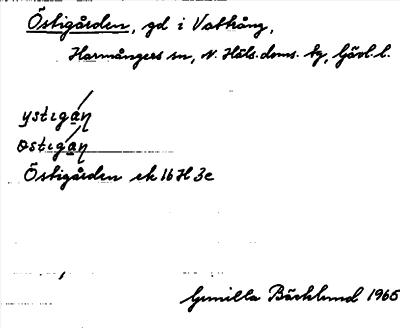 Östigården, gd i Vattrång,
Harmångers sn, N. Häls. doms. tg, Gävl. l.
ystigán
østigán
Östigården ek 16 H 3e
Gunilla Bäcklund 1966